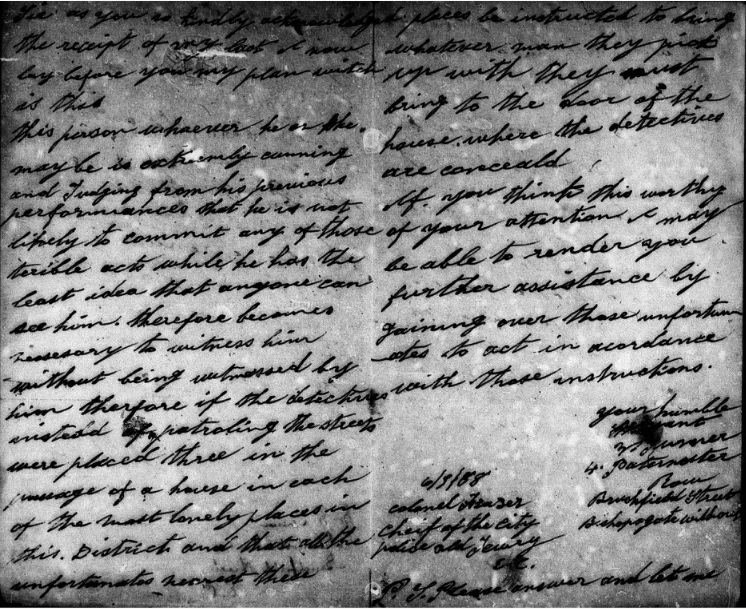 Sir as you so kindly acknowledged
the receipt of my last I now
lay before you my plan witch
is this
this person whoever he or she
may be is extremly cunning
and Judging from his previous
performances that he is not
likely to commit any of those
terible acts while he has the
least idea that anyone can
see him. therefore becomes
nessesary to witness him
without being witnessed by
him therfore if the detectives
instead of patroling the streets
were placed three in the
passage of a house in each
of the most lonely places in
this. District and that all the
unfortunates nearest these
places be instructed to bring
whatever man they pick
up with they must
bring to the door of the
house. where the detectives
are conceald
If. you think this worthy
of your attention I may
be able to render you
further assistance by
gaining over those unfortun
ates to act in acordance
with those instructions.
your humble
Servant
4. Paternoster
Row
Brushfield Street
Bishopsgate without
colonel Frazer
chief of the City
police old Jewry
E.C.
P.S. Please answer and let me